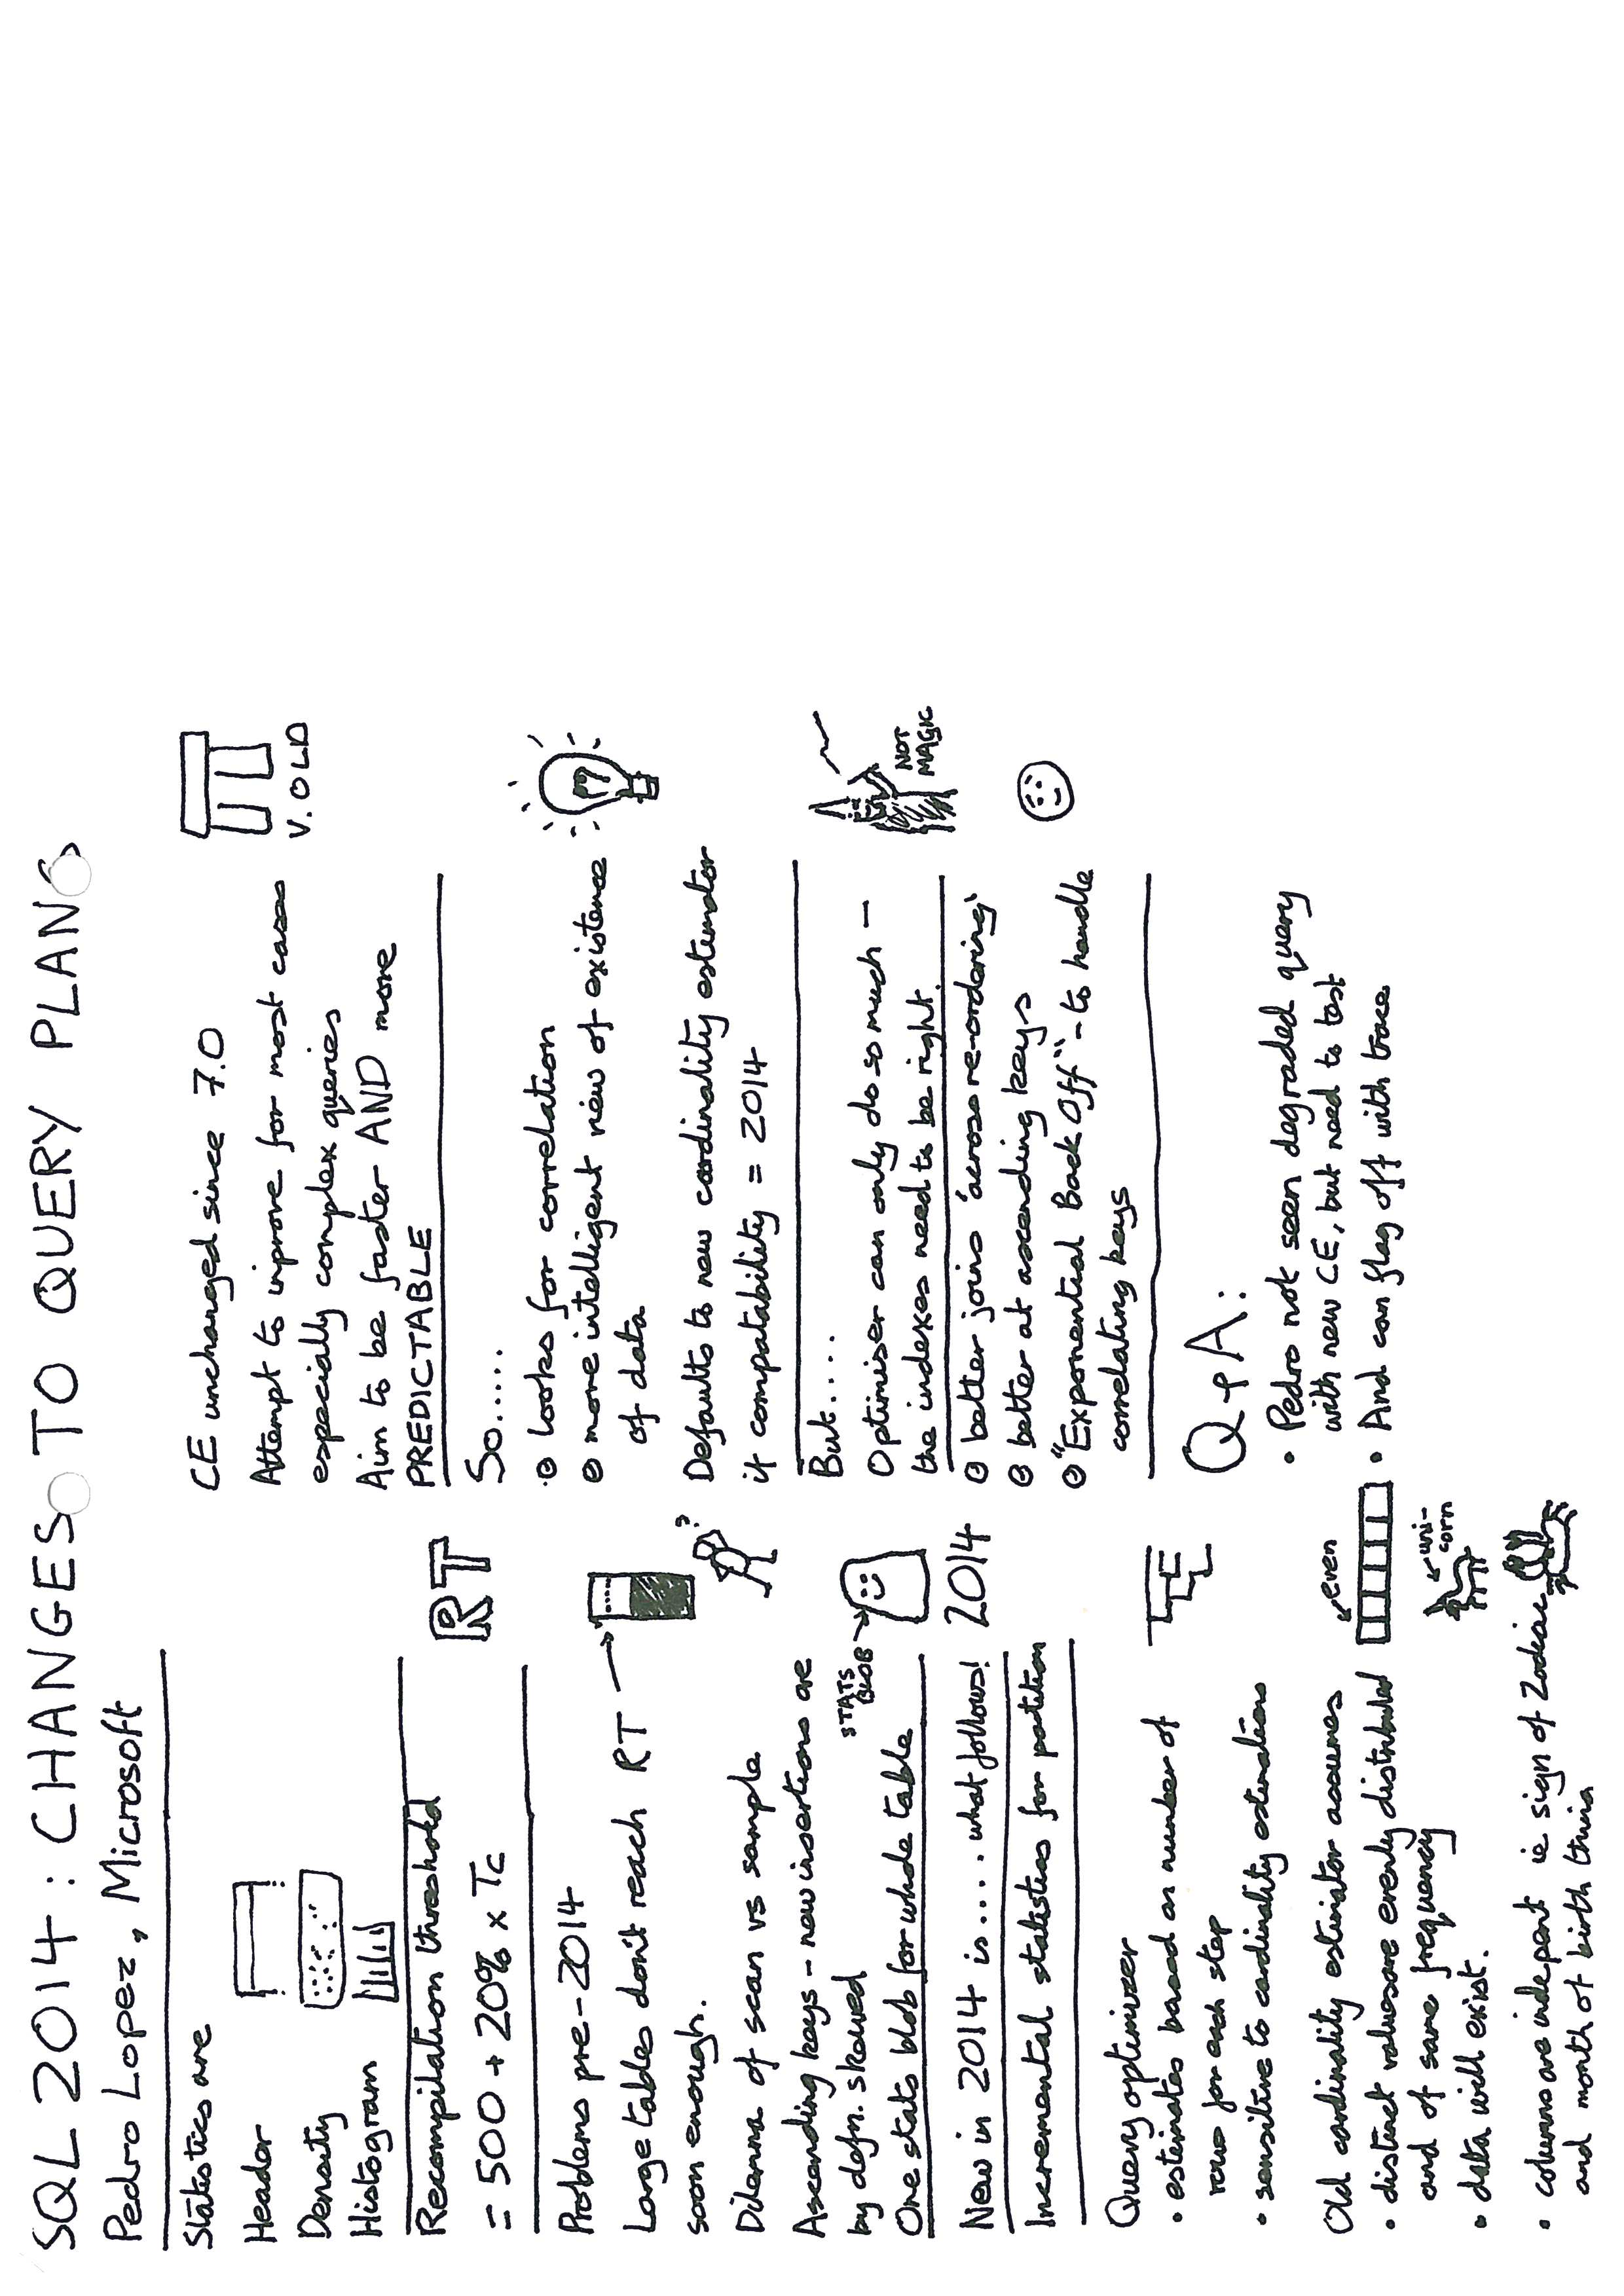 SQL 2014: CHANGES TO QUERY PLANS
Pedro Lopez, Microsoft
Statistics are
Header
Density
Histogram
Recompilation threshold
= 500 + 20% x Tc
RT
Problems pre-2014
Large tables don't reach RT
soon enough.
Dilemma of scan vs sample
Ascending keys - new insertions are
by defn. skewed
STATS
BLOB
One stats blob for whole table
New in 2014 is.... what follows!
2014
Incremental statistics for partition
Query optimizer
• estimates based on number of
rows for each step
• sensitive to cardinality estimations
Old cardinality estimator assumes
• distinct values are evenly distributed
and of same frequency
even
• data will exist.
uni-
corn
• columns are indepent ie sign of Zodiac
and month of birth
CE unchanged since 7.0
V. OLD
Attempt to improve for most cases
especially complex queries
Aim to be faster AND more
PREDICTABLE
So....
looks for correlation
more intelligent view of existence
of data
Defaults to new cardinality estimator
if compatability = 2014
But....
Optimiser can only do so much -
the indexes need to be right.
NOT
MAGIC
better joins 'across re-ordering'
better at ascending keys
"Exponential Back Off" - to handle
correlating keys
Q+A:
• Pedro not seen degraded query
with new CE, but need to test
• And can flag off with trace